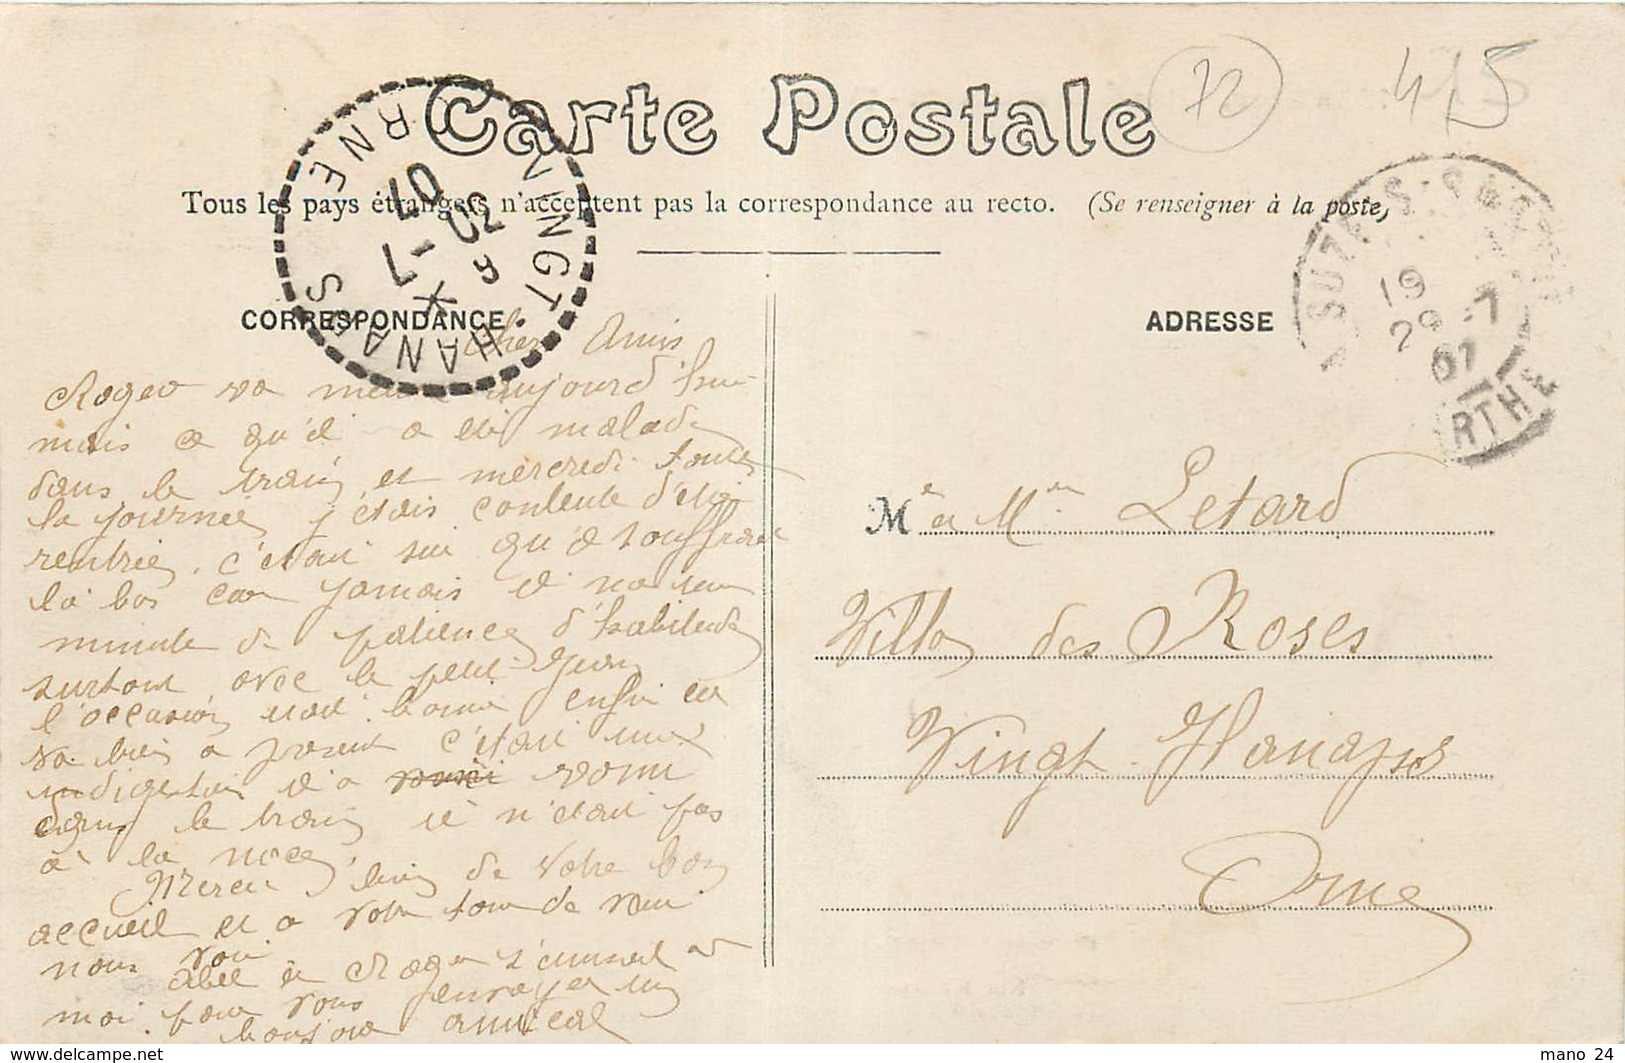 Carte Postale
72
415
Tous les pays étrangers n'acceptent pas la correspondance au recto. (Se renseigner à la poste)
VINGT-HANAPS
ORNE
20 -7 07
19
29 -7
07
SARTHE
CORRESPONDANCE
ADRESSE
Cher Amis
Roger va mieux aujourd'hui
mais ce qu'il a été malade
dans le train et mercredi toute
la journée j'étais contente d'être
rentrée. c'était sur qu'il souffrait
là bas car jamais il na une
minute de patience d'habitude
surtout avec le petit Jean
l'occasion était bonne enfin ca
va bien a present c'était une
indigestion il a vomi vomi
dans le train il n'était pas
à la noce,
Merci bien de votre bon
accueil et a votre tour de venir
nous voir
Abel et Roger s'unissent a
moi pour vous envoyer un
bonjour amical
M. et Mme Letard
Villa des Roses
Vingt Hanaps
Orne
www.delcampe.net
mano 24